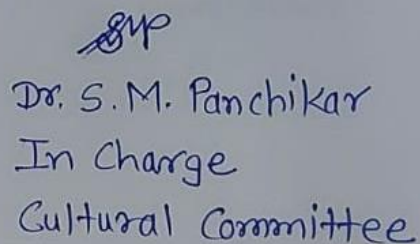 Dr. S. M. Panchikar
In Charge
Cultural Committee